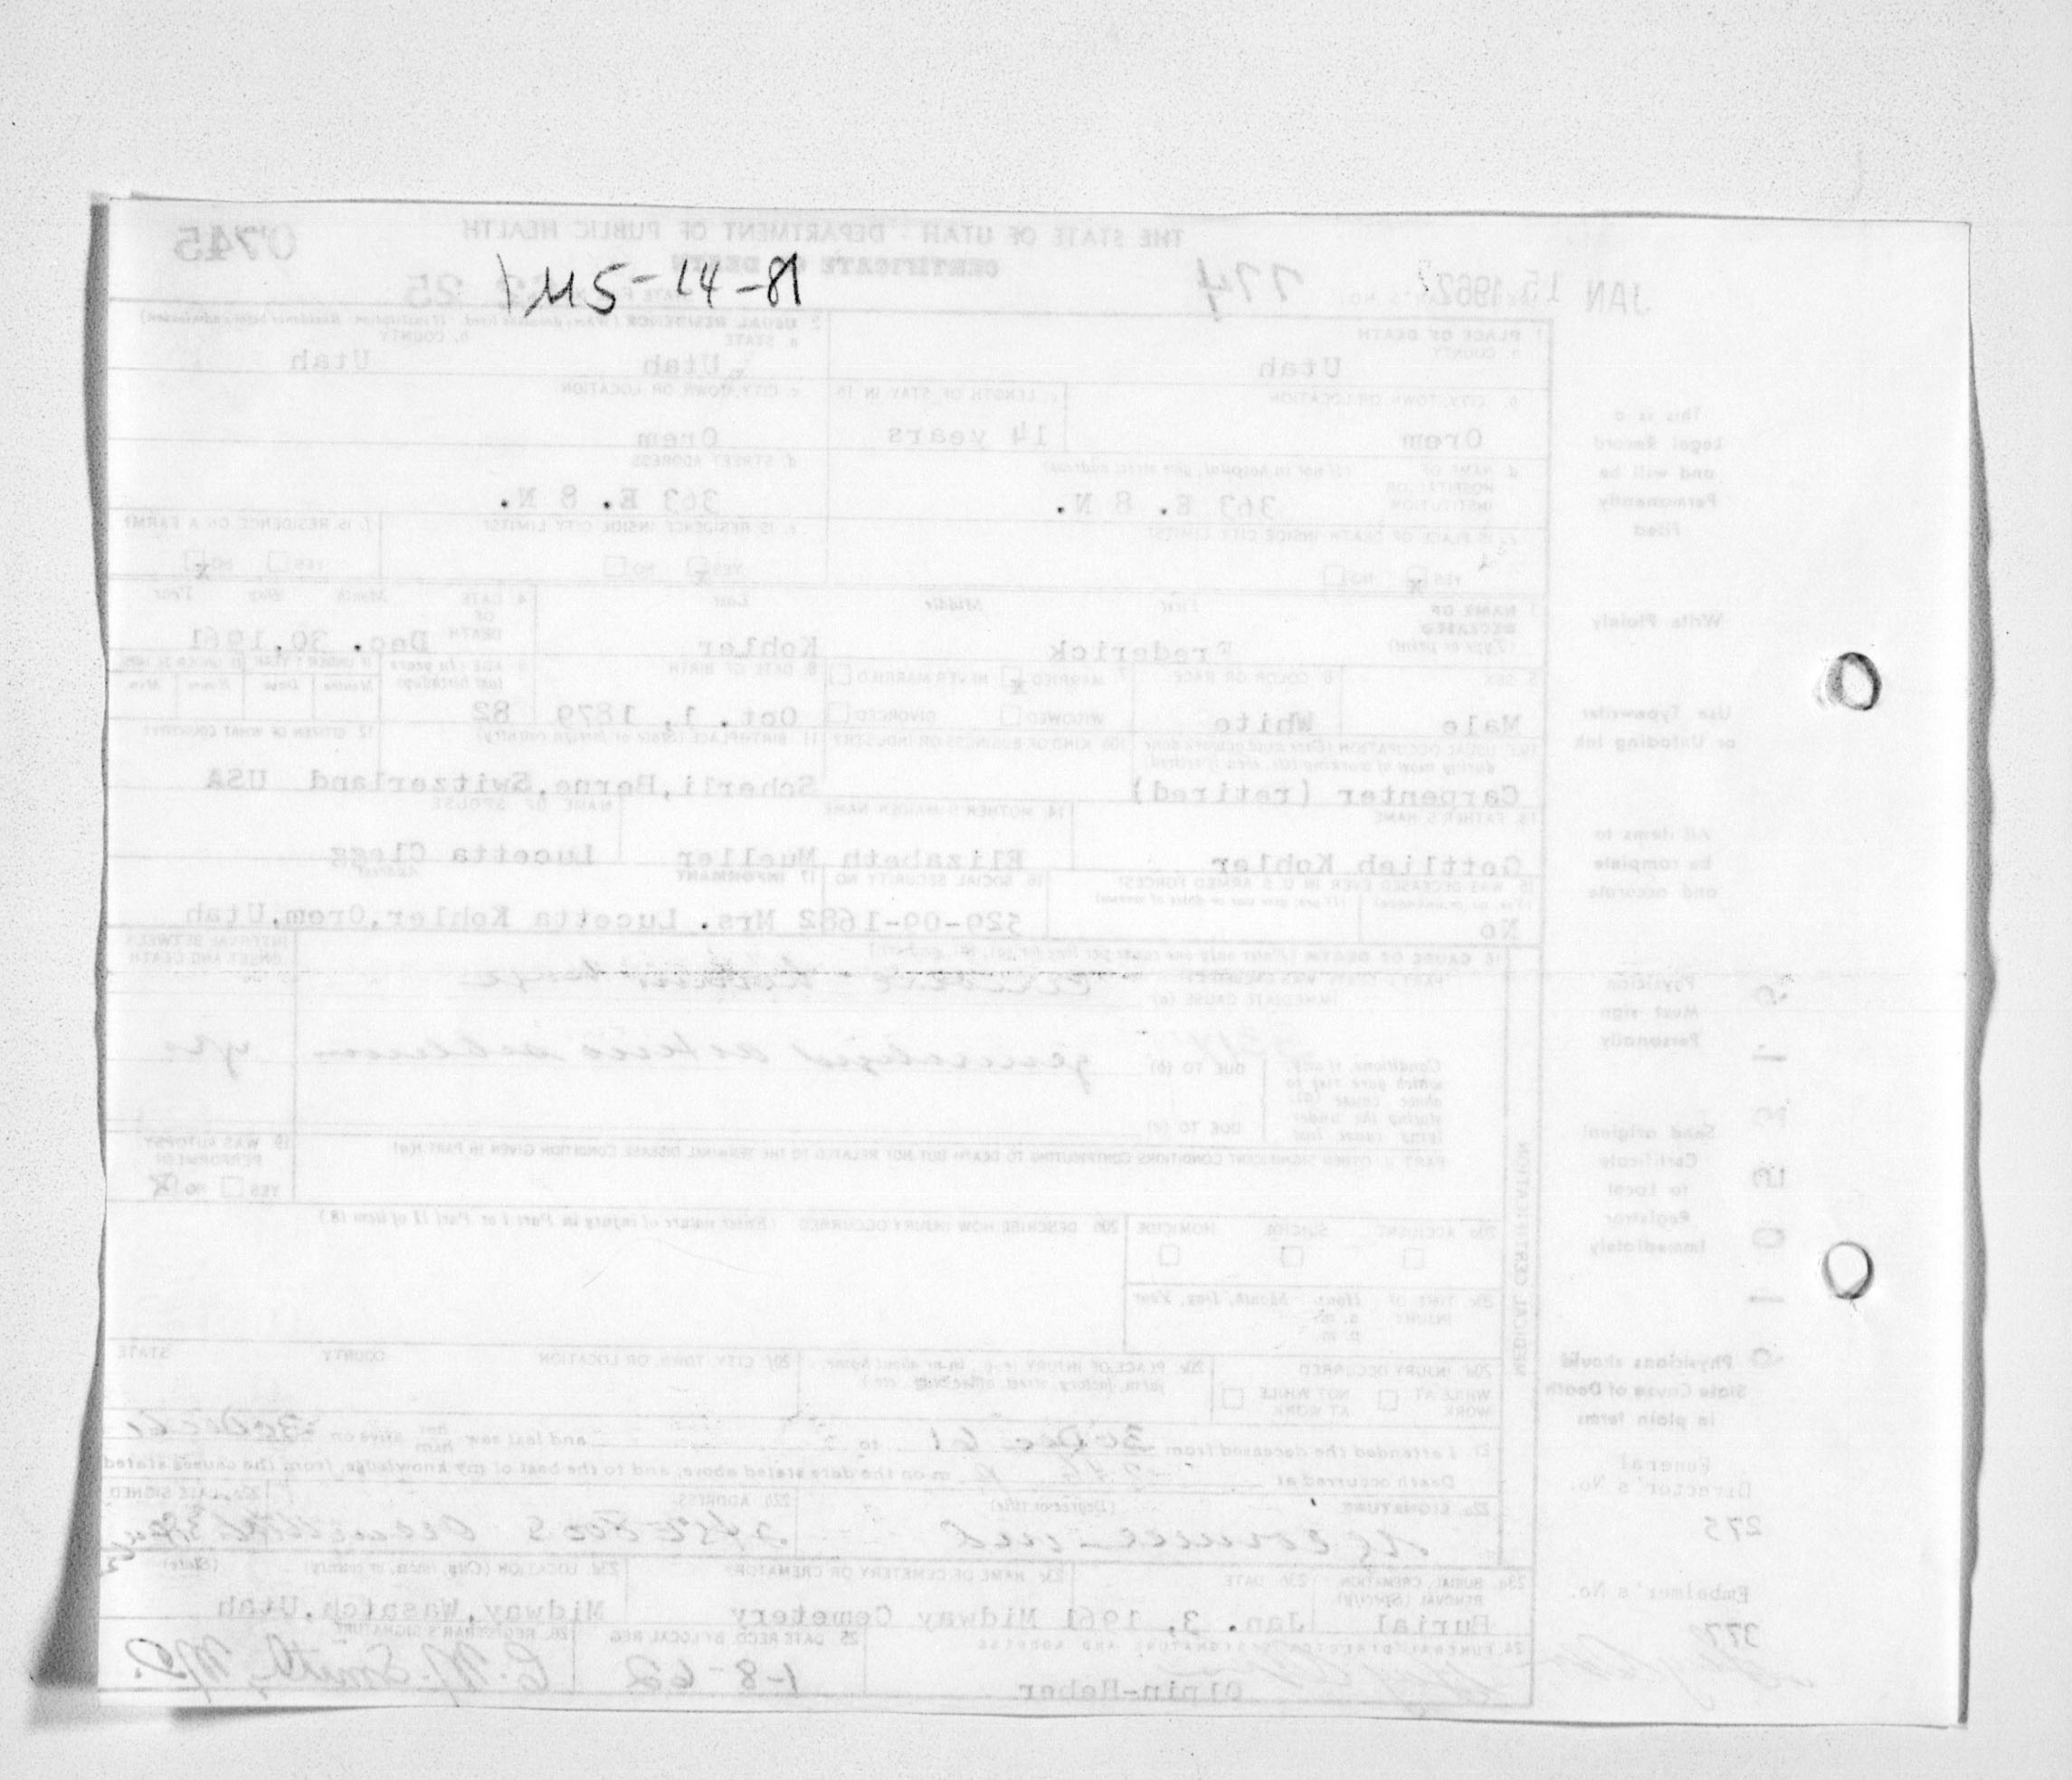 1M5-14-81
THE STATE OF UTAH - DEPARTMENT OF PUBLIC HEALTH
CERTIFICATE OF DEATH
0745
JAN 15 1962
774
25
1. PLACE OF DEATH
a. COUNTY
Utah
2. USUAL RESIDENCE (Where deceased lived. If institution: Residence before admission)
a. STATE
Utah
b. COUNTY
Utah
b. CITY, TOWN OR LOCATION
Orem
c. LENGTH OF STAY IN 1b
14 years
c. CITY, TOWN OR LOCATION
Orem
d. NAME OF HOSPITAL OR INSTITUTION
(If not in hospital, give street address)
363 E. 8 N.
d. STREET ADDRESS
363 E. 8 N.
e. IS PLACE OF DEATH INSIDE CITY LIMITS?
YES x NO
e. IS RESIDENCE INSIDE CITY LIMITS?
YES x NO
f. IS RESIDENCE ON A FARM?
YES NO x
3. NAME OF DECEASED
(Type or print)
First Middle Last
Frederick Kohler
4. DATE OF DEATH
Month Day Year
Dec. 30, 1961
5. SEX
Male
6. COLOR OR RACE
White
7. MARRIED x NEVER MARRIED
WIDOWED DIVORCED
8. DATE OF BIRTH
Oct. 1, 1879
9. AGE (In years last birthday)
82
Months Days Hours Min.
10a. USUAL OCCUPATION (Give kind of work done during most of working life, even if retired)
Carpenter (retired)
10b. KIND OF BUSINESS OR INDUSTRY
11. BIRTHPLACE (State or foreign country)
Scherli, Berne, Switzerland
12. CITIZEN OF WHAT COUNTRY?
USA
13. FATHER'S NAME
Gottlieb Kohler
14. MOTHER'S MAIDEN NAME
Elizabeth Mueller
NAME OF SPOUSE
Lucetta Clegg
15. WAS DECEASED EVER IN U.S. ARMED FORCES?
No
16. SOCIAL SECURITY NO.
529-09-1682
17. INFORMANT Address
Mrs. Lucetta Kohler, Orem, Utah
18. CAUSE OF DEATH (Enter only one cause per line for (a), (b), and (c).)
INTERVAL BETWEEN ONSET AND DEATH
PART I. DEATH WAS CAUSED BY:
IMMEDIATE CAUSE (a)
Conditions, if any, which gave rise to above cause (a), stating the underlying cause last
DUE TO (b)
generalized
yrs
DUE TO (c)
PART II. OTHER SIGNIFICANT CONDITIONS CONTRIBUTING TO DEATH BUT NOT RELATED TO THE TERMINAL DISEASE CONDITION GIVEN IN PART I(a)
19. WAS AUTOPSY PERFORMED?
YES NO
MEDICAL CERTIFICATION
20a. ACCIDENT SUICIDE HOMICIDE
20b. DESCRIBE HOW INJURY OCCURRED. (Enter nature of injury in Part I or Part II of item 18.)
20c. TIME OF INJURY
Hour Month, Day, Year
a. m.
p. m.
20d. INJURY OCCURRED
WHILE AT WORK NOT WHILE AT WORK
20e. PLACE OF INJURY (e.g., in or about home, farm, factory, street, office bldg., etc.)
20f. CITY, TOWN, OR LOCATION COUNTY STATE
21. I attended the deceased from 30 Dec 61 to and last saw her him alive on 30 Dec 61
Death occurred at m on the date stated above, and to the best of my knowledge, from the causes stated
22a. SIGNATURE (Degree or title)
22b. ADDRESS
22c. DATE SIGNED
23a. BURIAL, CREMATION REMOVAL (Specify)
Burial
23b. DATE
Jan. 3, 1961
23c. NAME OF CEMETERY OR CREMATORY
Midway Cemetery
23d. LOCATION (City, town, or county) (State)
Midway, Wasatch, Utah
24. FUNERAL DIRECTOR'S SIGNATURE AND ADDRESS
Olpin-Heber
25. DATE RECD. BY LOCAL REG.
1-8-62
26. REGISTRAR'S SIGNATURE
C. M. Smith, M.D.
This is a
Legal Record
and will be
Permanently
Filed
Write Plainly
Use Typewriter
or Unfading Ink
All items to
be complete
and accurate
Physician
Must sign
Personally
Send original
Certificate
to Local
Registrar
Immediately
Physicians should
State Cause of Death
in plain terms
Funeral
Director's No.
275
Embalmer's No.
377